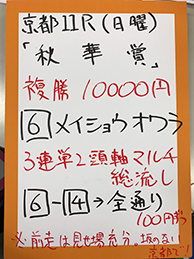 京都11R(日曜)
「秋華賞」
複勝 10000円
6 メイショウオワラ
3連単2頭軸マルチ
総流し
6-14→全通り
100円ずつ
※前走は見せ場充分。坂のない
京都で!